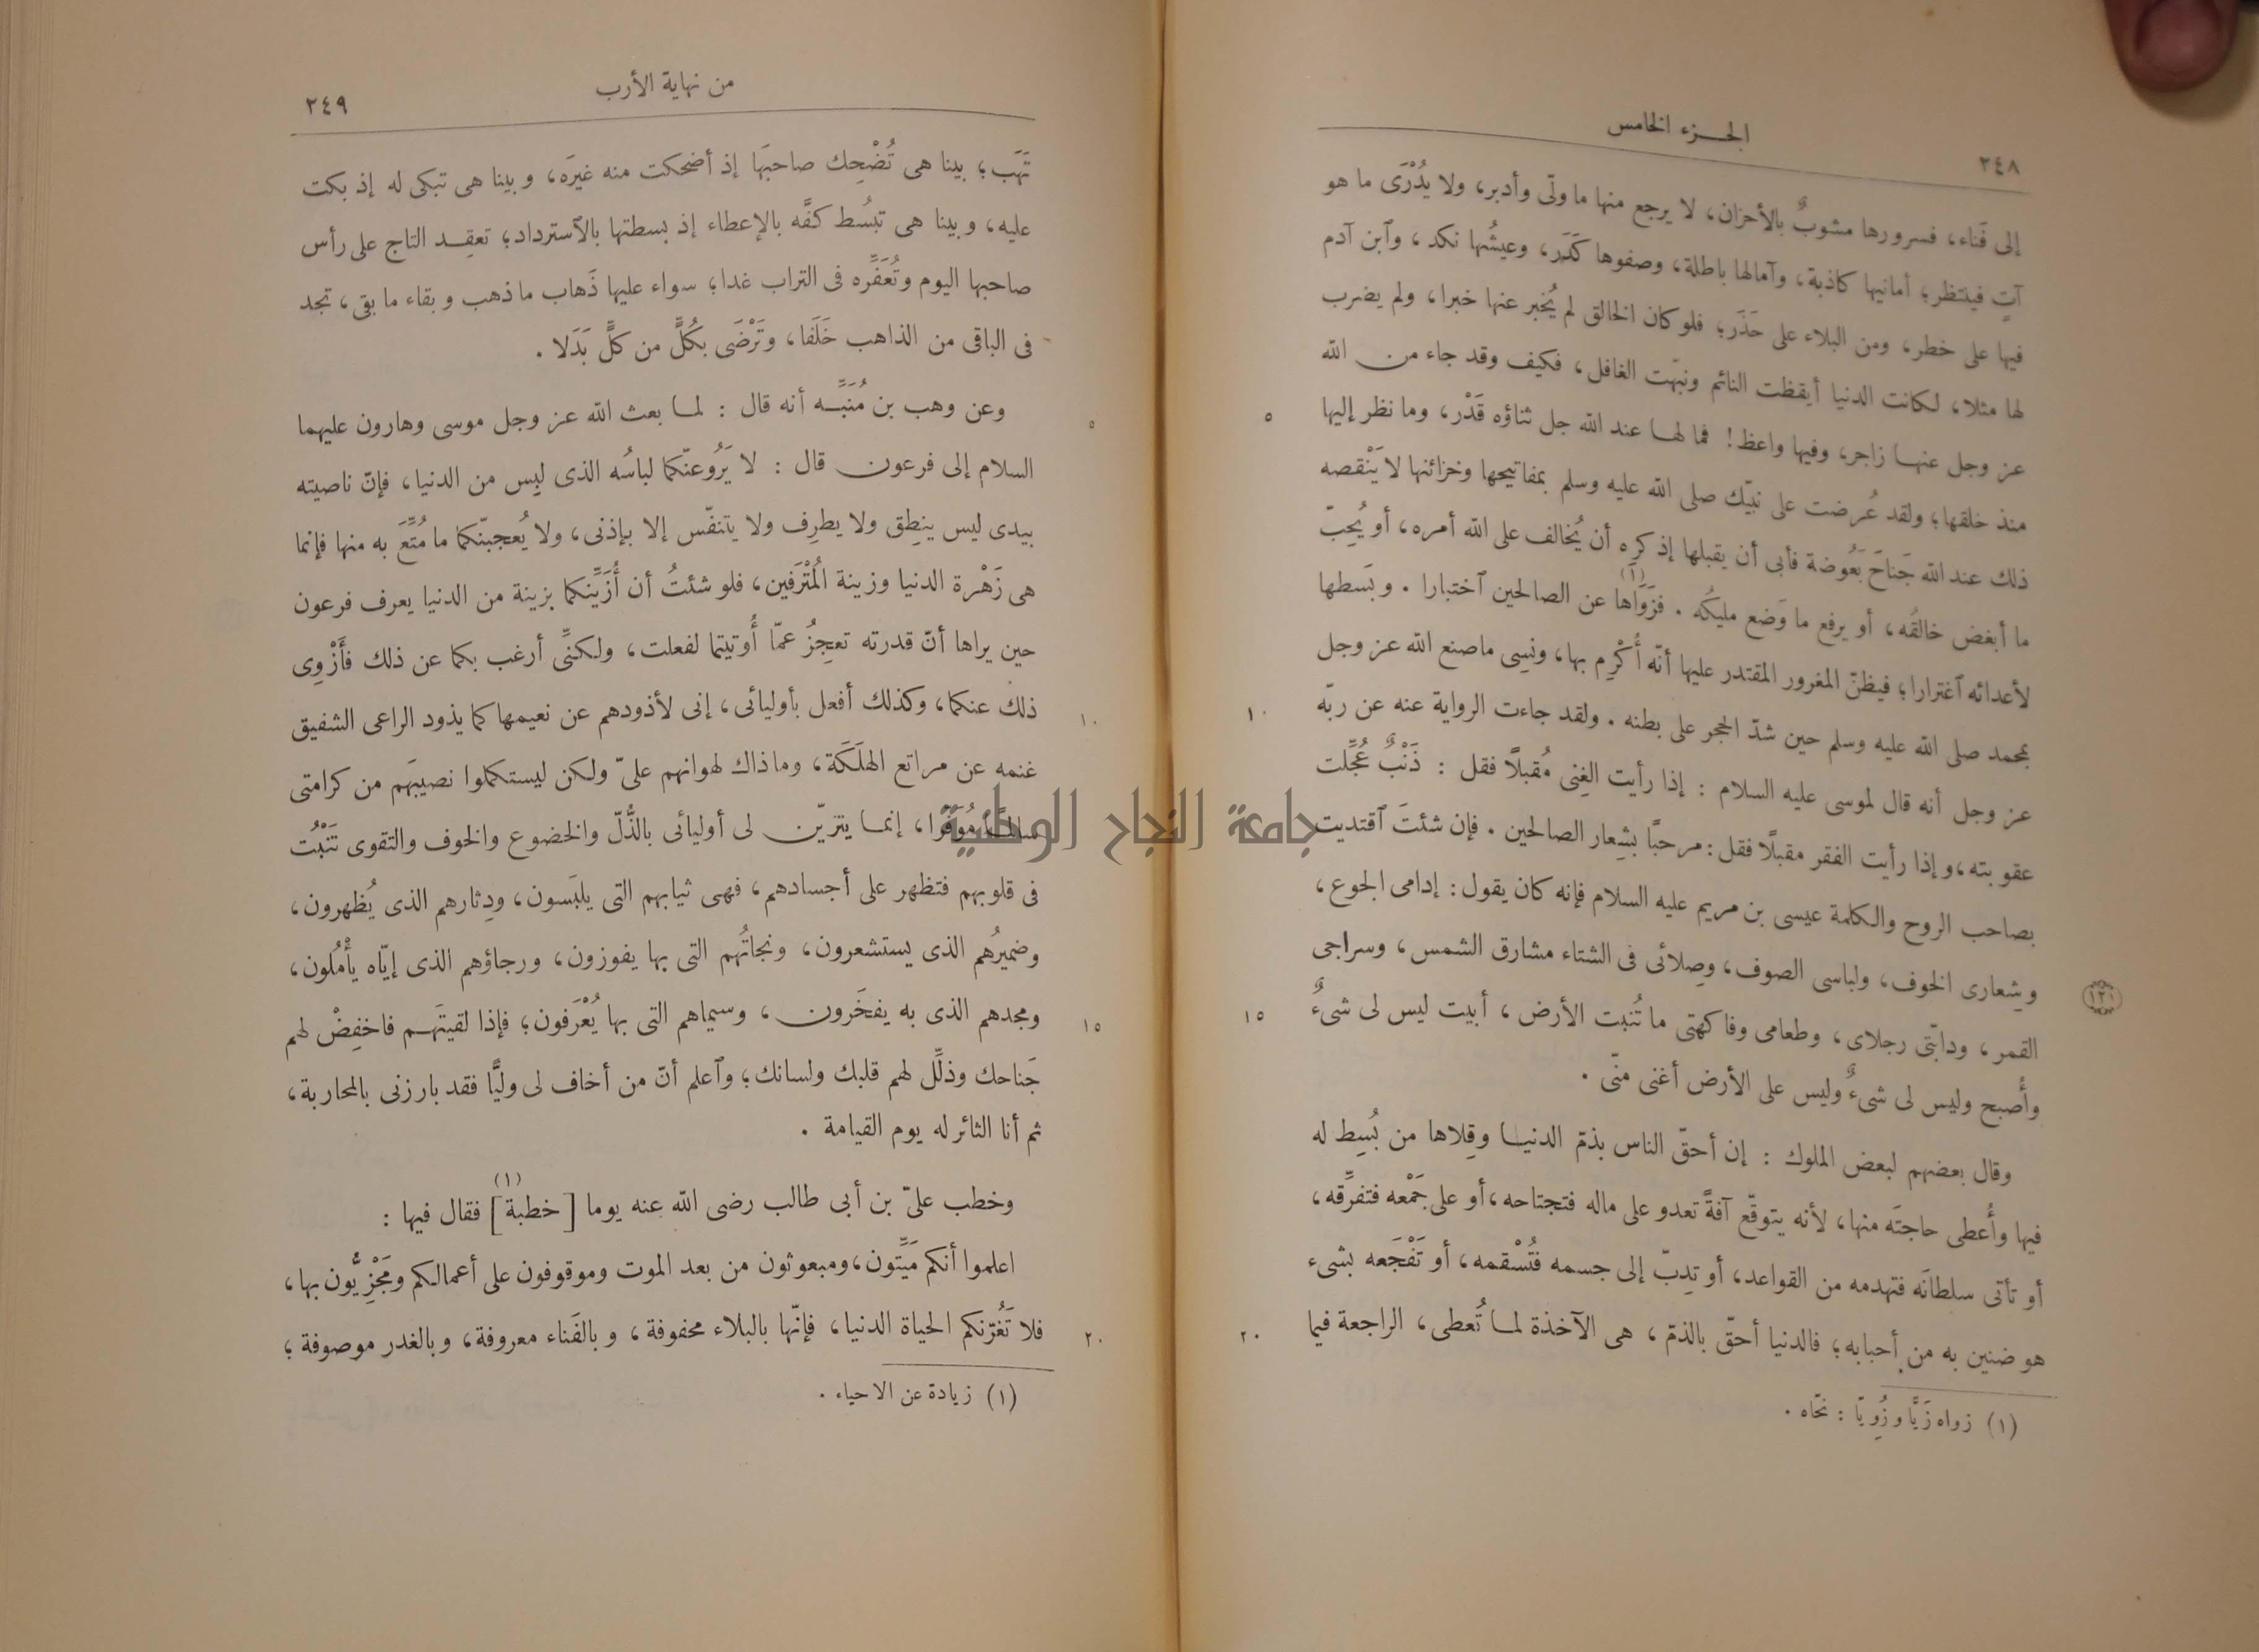 ٢٤٨
الجزء الخامس
إلى فَناء، فسرورها مشوبٌ بالأحزان، لا يرجع منها ما ولّى وأدبر، ولا يُدْرَى ما هو
آتٍ فينتظر؛ أمانيها كاذبة، وآمالها باطلة، وصفوها كَدَر، وعيشُها نكد، وٱبن آدم
فيها على خطر، ومن البلاء على حَذَر؛ فلو كان الخالق لم يُخبر عنها خبرا، ولم يضرب
لها مثلا، لكانت الدنيا أيقظت النائم ونبّهت الغافل، فكيف وقد جاء من الله
عز وجل عنها زاجر، وفيها واعظ! فما لها عند الله جل ثناؤه قَدْر، وما نظر إليها
٥
منذ خلقها؛ ولقد عُرضت على نبيّك صلى الله عليه وسلم بمفاتيحها وخزائنها لا يَنْقصه
ذلك عند الله جَناحَ بَعُوضة فأبى أن يقبلها إذ كرِه أن يُخالف على الله أمره، أو يُحِبّ
ما أبغض خالقُه، أو يرفع ما وَضع مليكُه . فزَوَاها (١) عن الصالحين ٱختبارا . وبَسطها
لأعدائه ٱغترارا؛ فيظنّ المغرور المقتدر عليها أنّه أُكْرِم بها، ونسِى ما صنع الله عز وجل
بمحمد صلى الله عليه وسلم حين شدّ الحجر على بطنه . ولقد جاءت الرواية عنه عن ربّه
١٠
عز وجل أنه قال لموسى عليه السلام : إذا رأيت الغِنى مُقبلًا فقل : ذَنْبٌ عُجِّلت
عقوبته، وإذا رأيت الفقر مقبلًا فقل : مرحبًا بشِعار الصالحين . فإن شئتَ ٱقتديت
بصاحب الروح والكلمة عيسى بن مريم عليه السلام فإنه كان يقول : إدامى الجوع،
وشِعارى الخوف، ولباسى الصوف، وصِلائى فى الشتاء مشارق الشمس، وسراجى
١٢١
القمر، ودابّتى رجلاى، وطعامى وفاكهتى ما تُنبت الأرض، أبيت ليس لى شىءٌ
١٥
وأُصبح وليس لى شىءٌ وليس على الأرض أغنى منّى .
وقال بعضهم لبعض الملوك : إن أحقّ الناس بذمّ الدنيا وقِلاها من بُسِط له
فيها وأُعطى حاجتَه منها، لأنه يتوقّع آفةً تعدو على ماله فتجتاحه، أو على جَمْعه فتفرِّقه،
أو تأتى سلطانَه فتهدمه من القواعد، أو تدِبّ إلى جسمه فتُسْقمه، أو تَفْجَعه بشىء
هو ضنين به من أحبابه؛ فالدنيا أحقّ بالذمّ، هى الآخذة لما تُعطى، الراجعة فيما
٢٠
(١) زواه زَيًّا وزُوِيّا : نحّاه .
من نهاية الأرب
٢٤٩
تَهَب؛ بينا هى تُضْحِك صاحبَها إذ أضحكت منه غيرَه، وبينا هى تبكى له إذ بكت
عليه، وبينا هى تبسُط كفَّه بالإعطاء إذ بسطتها بالٱسترداد؛ تعقِد التاج على رأس
صاحبها اليوم وتُعَفِّره فى التراب غدا؛ سواء عليها ذَهاب ما ذهب وبقاء ما بقى، تجد
فى الباقى من الذاهب خَلَفا، وتَرْضَى بكُلٍّ من كلٍّ بَدَلا .
وعن وهب بن مُنَبِّه أنه قال : لما بعث الله عز وجل موسى وهارون عليهما
٥
السلام إلى فرعون قال : لا يَرُوعنّكما لباسُه الذى لبِس من الدنيا، فإنّ ناصيته
بيدى ليس ينطِق ولا يطرِف ولا يتنفّس إلا بإذنى، ولا يُعجبنّكما ما مُتِّعَ به منها فإنما
هى زَهْرة الدنيا وزينة المُتْرَفين، فلو شئتُ أن أُزَيِّنكما بزينة من الدنيا يعرف فرعون
حين يراها أنّ قدرته تعجِزُ عمّا أُوتيتما لفعلت، ولكنِّى أرغب بكما عن ذلك فأَزْوِى
ذلك عنكما، وكذلك أفعل بأوليائى، إنى لأذودهم عن نعيمها كما يذود الراعى الشفيق
١٠
غنمه عن مراتع الهَلَكَة، وما ذاك لهوانهم علىّ ولكن ليستكملوا نصيبَهم من كرامتى
سالمًا مُوَفَّرا، إنما يتزيّن لى أوليائى بالذُّلّ والخضوع والخوف والتقوى تَنْبُت
فى قلوبهم فتظهر على أجسادهم، فهى ثيابهم التى يلبَسون، ودِثارهم الذى يُظهرون،
وضميرُهم الذى يستشعرون، ونجاتُهم التى بها يفوزون، ورجاؤهم الذى إيّاه يأْمُلون،
ومجدهم الذى به يفخَرون، وسيماهم التى بها يُعْرَفون؛ فإذا لقيتَهم فاخفِضْ لهم
١٥
جَناحك وذلِّل لهم قلبك ولسانك؛ وٱعلم أنّ من أخاف لى وليًّا فقد بارزنى بالمحاربة،
ثم أنا الثائر له يوم القيامة .
وخطب علىّ بن أبى طالب رضى الله عنه يوما [خطبة] (١) فقال فيها :
اعلموا أنكم مَيِّتون، ومبعوثون من بعد الموت وموقوفون على أعمالكم ومَجْزِيُّون بها،
فلا تَغُرّنكم الحياة الدنيا، فإنّها بالبلاء محفوفة، وبالفَناء معروفة، وبالغدر موصوفة؛
٢٠
(١) زيادة عن الاحياء .
جامعة النجاح الوطنية